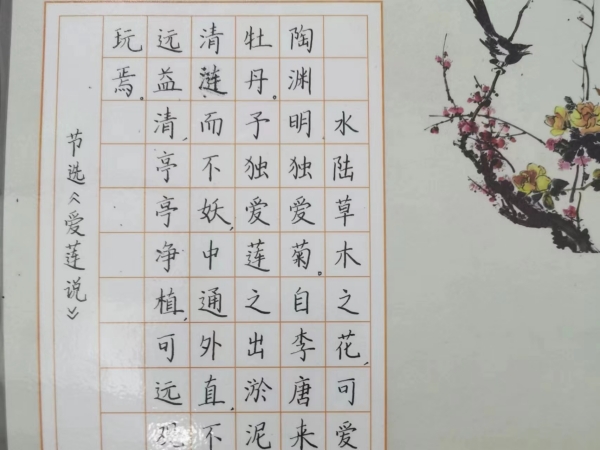 水陆草木之花,可爱
陶渊明独爱菊。自李唐来
牡丹。予独爱莲之出淤泥
清涟而不妖,中通外直,不
远益清,亭亭净植,可远
玩焉。
节选《爱莲说》